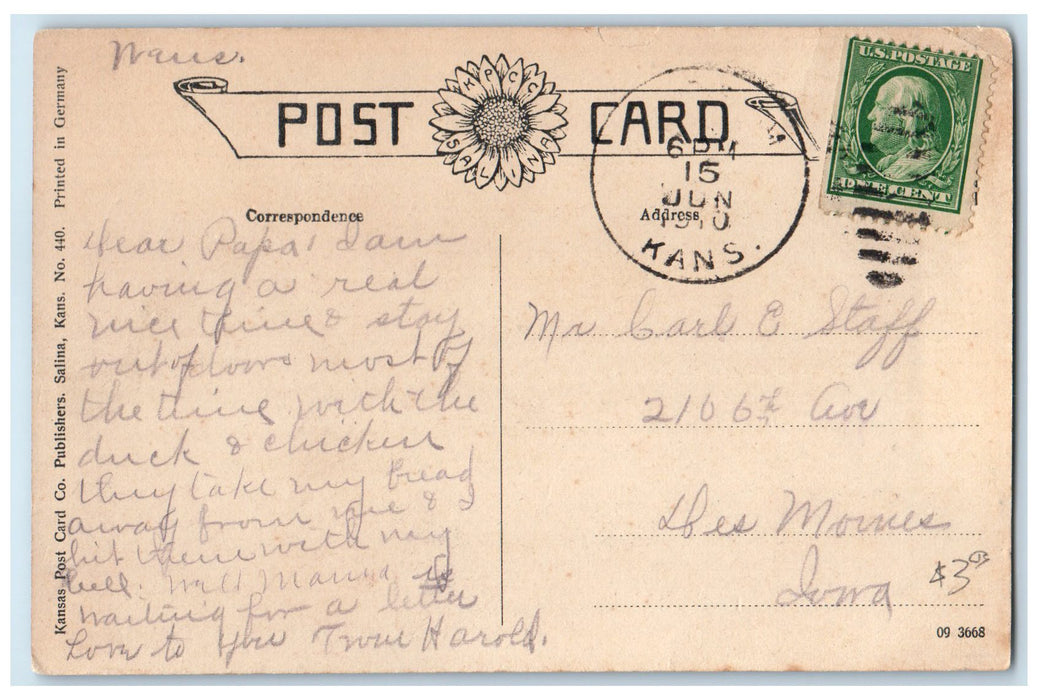 Kans.
POST CARD
K P C C
SALINA
U.S. POSTAGE
ONE CENT
6 PM
15
JUN
1910
KANS.
Correspondence
Address
Dear Papa, I am
having a real
nice time & stay
out of doors most of
the time with the
duck & chicken
they take my bread
away from me & I
hit them with my
bell. Well Mama is
waiting for a letter
Love to you From Harold.
Mr Carl E Staff
2106 th Ave
Des Moines
Iowa
$3
09 3668
Kansas Post Card Co. Publishers. Salina, Kans. No. 440. Printed in Germany